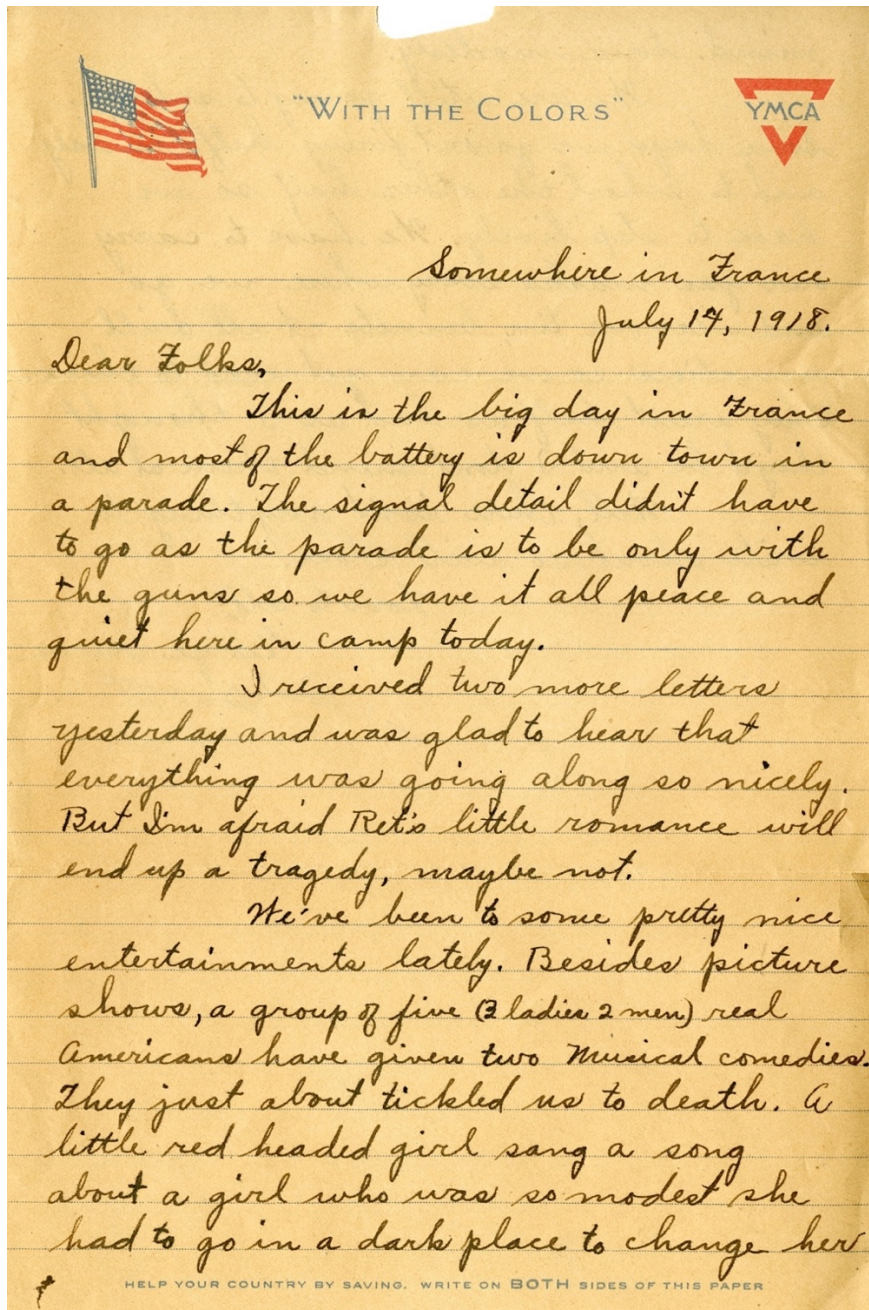 "WITH THE COLORS"
YMCA
Somewhere in France
July 14, 1918.
Dear Folks,
This is the big day in France
and most of the battery is down town in
a parade. The signal detail didn't have
to go as the parade is to be only with
the guns so we have it all peace and
quiet here in camp today.
I received two more letters
yesterday and was glad to hear that
everything was going along so nicely.
But I'm afraid Ret's little romance will
end up a tragedy, maybe not.
We've been to some pretty nice
entertainments lately. Besides picture
shows, a group of five (3 ladies 2 men) real
Americans have given two Musical comedies.
They just about tickled us to death. A
little red headed girl sang a song
about a girl who was so modest she
had to go in a dark place to change her
HELP YOUR COUNTRY BY SAVING. WRITE ON BOTH SIDES OF THIS PAPER